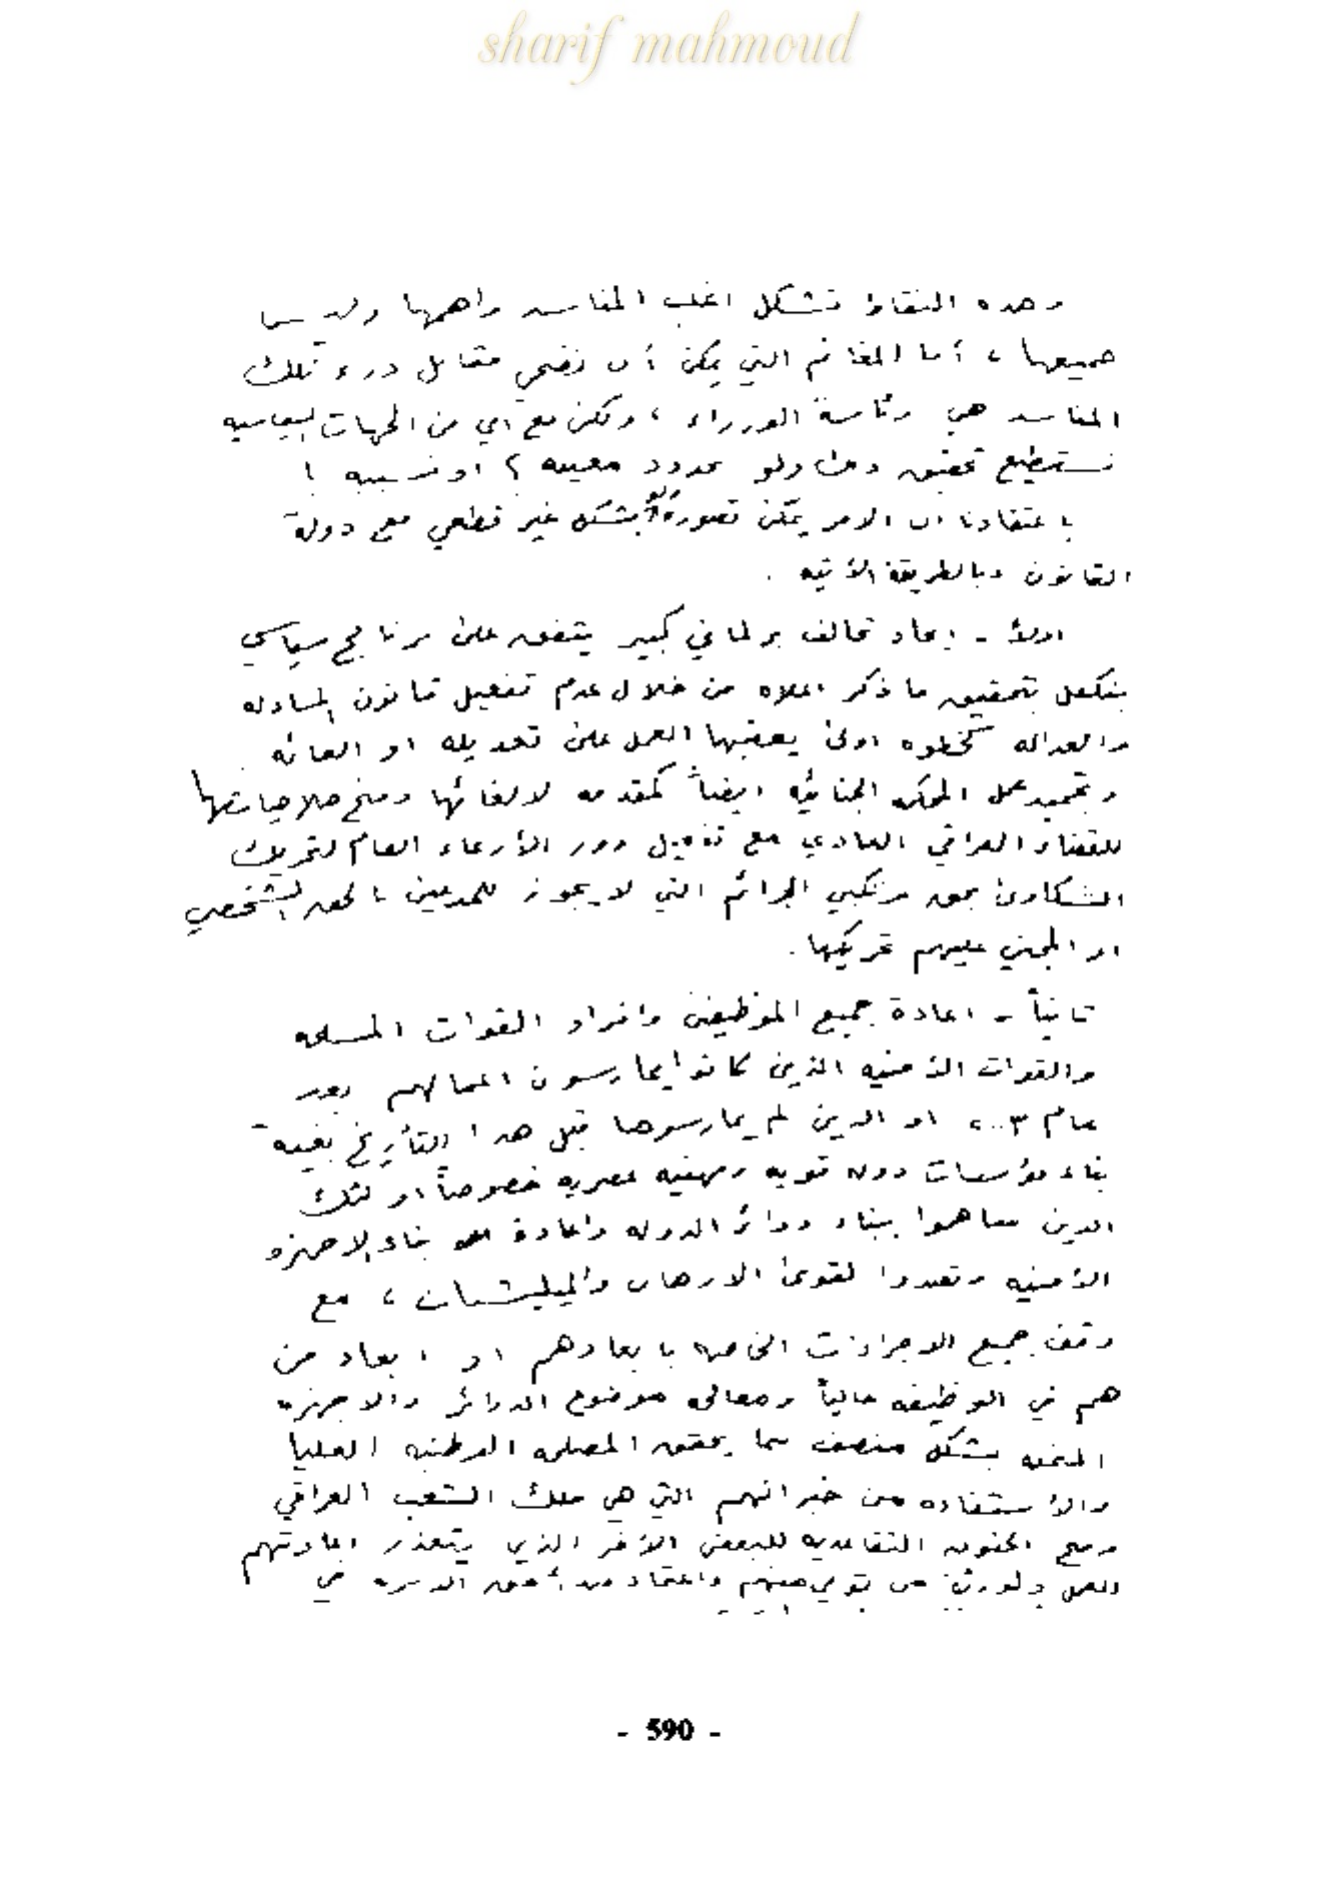 sharif mahmoud
وهذه النقاط تشكل اغلب المفاسد واهمها وليس
جميعها ، أما المغانم التي يمكن أن نضحي مقابل درء تلك
المفاسد هي رئاسة الوزراء ، ولكن مع اي من الجهات السياسيه
نستطيع تحقيق ولو بحدود معينه ؟ او نسبيه !
باعتقادنا ان الامر يمكن تصوره ولو بشكل غير قطعي مع دولة
القانون وبالطريقة الأتيه .
اولاً - ايجاد تحالف برلماني كبير يتفق على برنامج سياسي
يتكفل بتحقيق ما ذكر اعلاه من خلال عدم تفعيل قانون المسائله
والعداله كخطوه اولى يعقبها العمل على تعديله او الغائه
وتجميد عمل المحكمه الجنائيه ايضاً كمقدمه لالغائها ومنح صلاحياتها
للقضاء العراقي العادي مع تفعيل دور الأدعاء العام لتحريك
الشكاوى بحق مرتكبي الجرائم التي لا يجوز للمدعين بالحق الشخصي
او المجني عليهم تحريكها .
ثانياً - اعادة جميع الموظفين وافراد القوات المسلحه
والقوات الأمنيه الذين كانوا يمارسون اعمالهم بعد
عام ٢٠٠٣ او الذين لم يمارسوها قبل هذا التأريخ بغية
بناء مؤسسات دوله قويه ومهنيه عصريه خصوصاً اولئك
الذين ساهموا ببناء دوائر الدوله واعادة بناء الاجهزه
الأمنيه وتصدوا لقوى الارهاب والميليشيات ، مع
وقف جميع الاجراءات الخاصه بابعادهم او ابعاد من
هم في الوظيفه حالياً ومعالجه موضوع الدوائر والاجهزه
المنحله بشكل منصف بما يحقق المصلحه الوطنيه العليا
والأستفاده من خبراتهم التي هي ملك الشعب العراقي
ومنح الحقوق التقاعديه للبعض الأخر الذي يتعذر اعادتهم
للعمل ولورثة من توفي منهم واعتماد مبدأ حق الاسره في
- 590 -